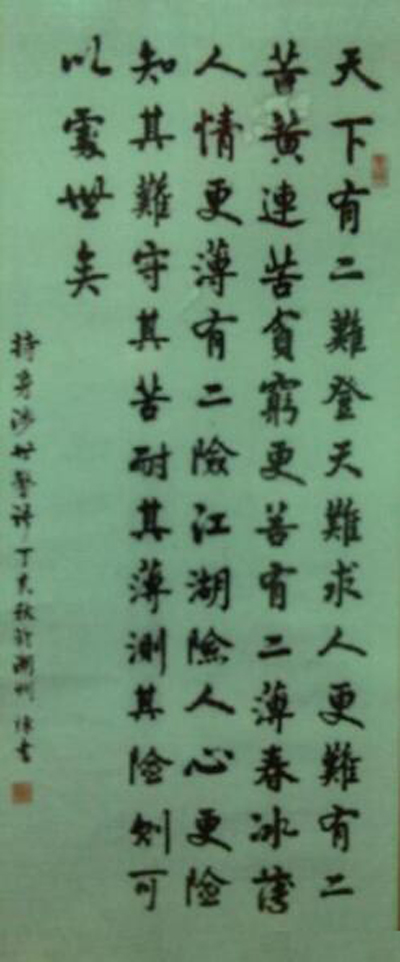 天下有二難登天難求人更難有二
苦黄連苦貧窮更苦有二薄春冰薄
人情更薄有二險江湖險人心更險
知其難守其苦耐其薄測其險則可
以處世矣
持身涉世警语丁亥秋於書